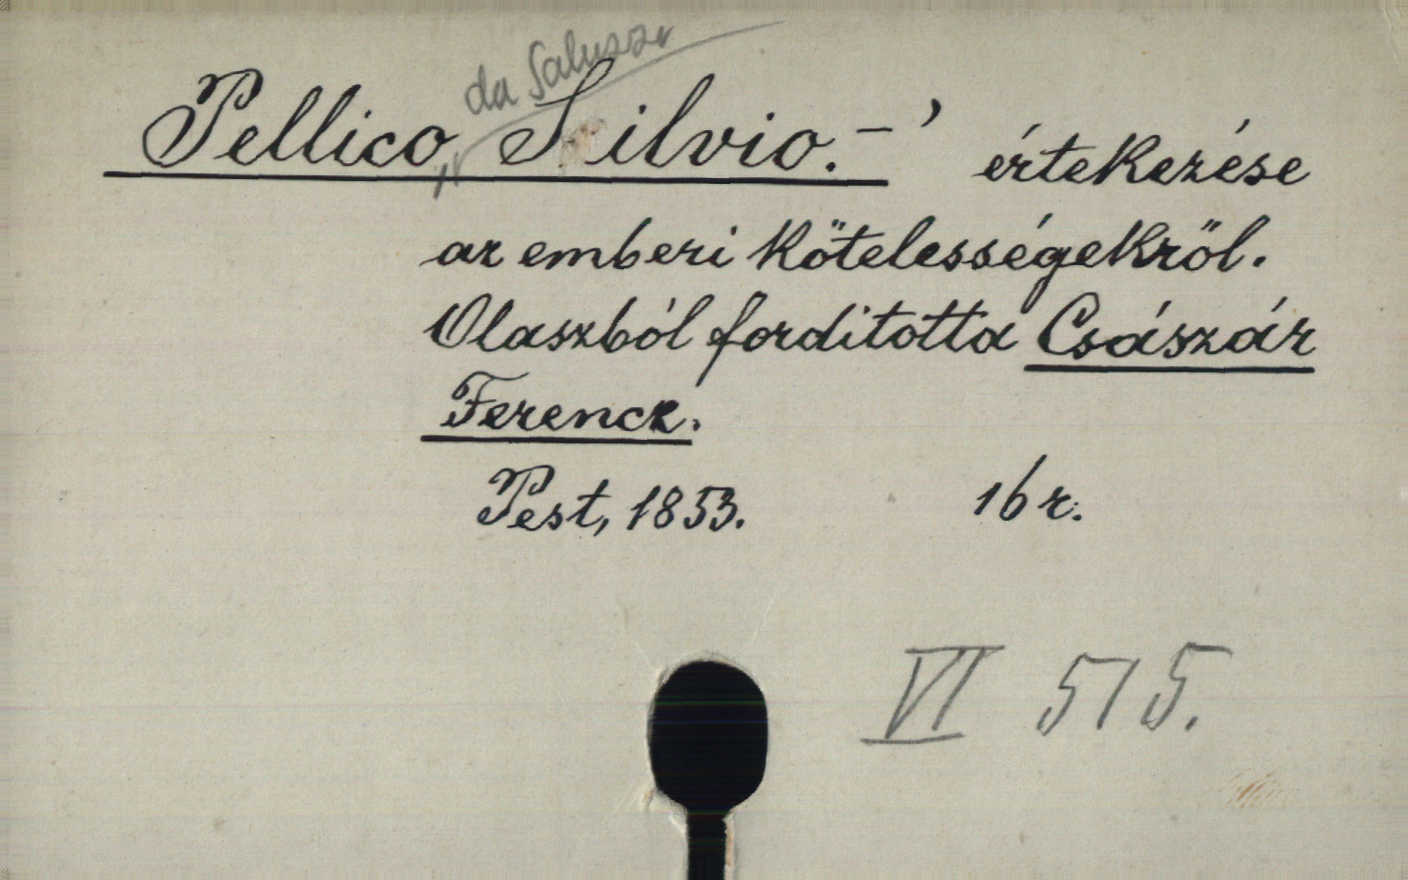 da Saluzzi
Pellico „ Silvio. – ' értekezése
az emberi kötelességekről.
Olaszból forditotta Császár
Ferencz.
Pest, 1853. 16 r.
VI 515.